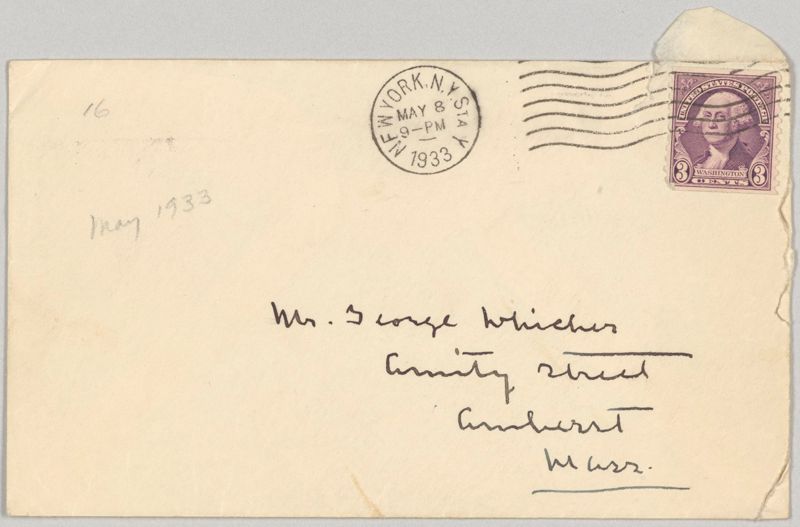 16
May 1933
NEW YORK, N.Y. STA Y
MAY 8
9-PM
1933
UNITED STATES POSTAGE
3 WASHINGTON 3
CENTS
Mr. George Whicher
Amity Street
Amherst
Mass.